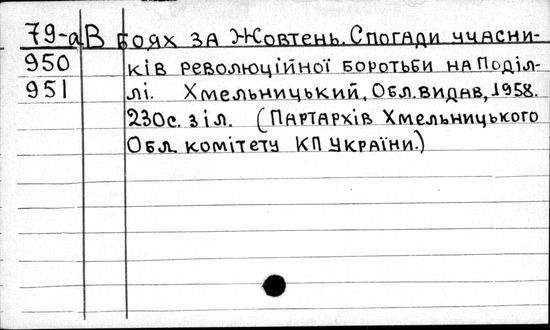 79-а В боях за Жовтень. Спогади учасни-
950 ків революційної боротьби на Поділ-
951 лі. Хмельницький, Обл. видав, 1958.
230с. з іл. (Партархів Хмельницького
Обл. комітету КП України.)